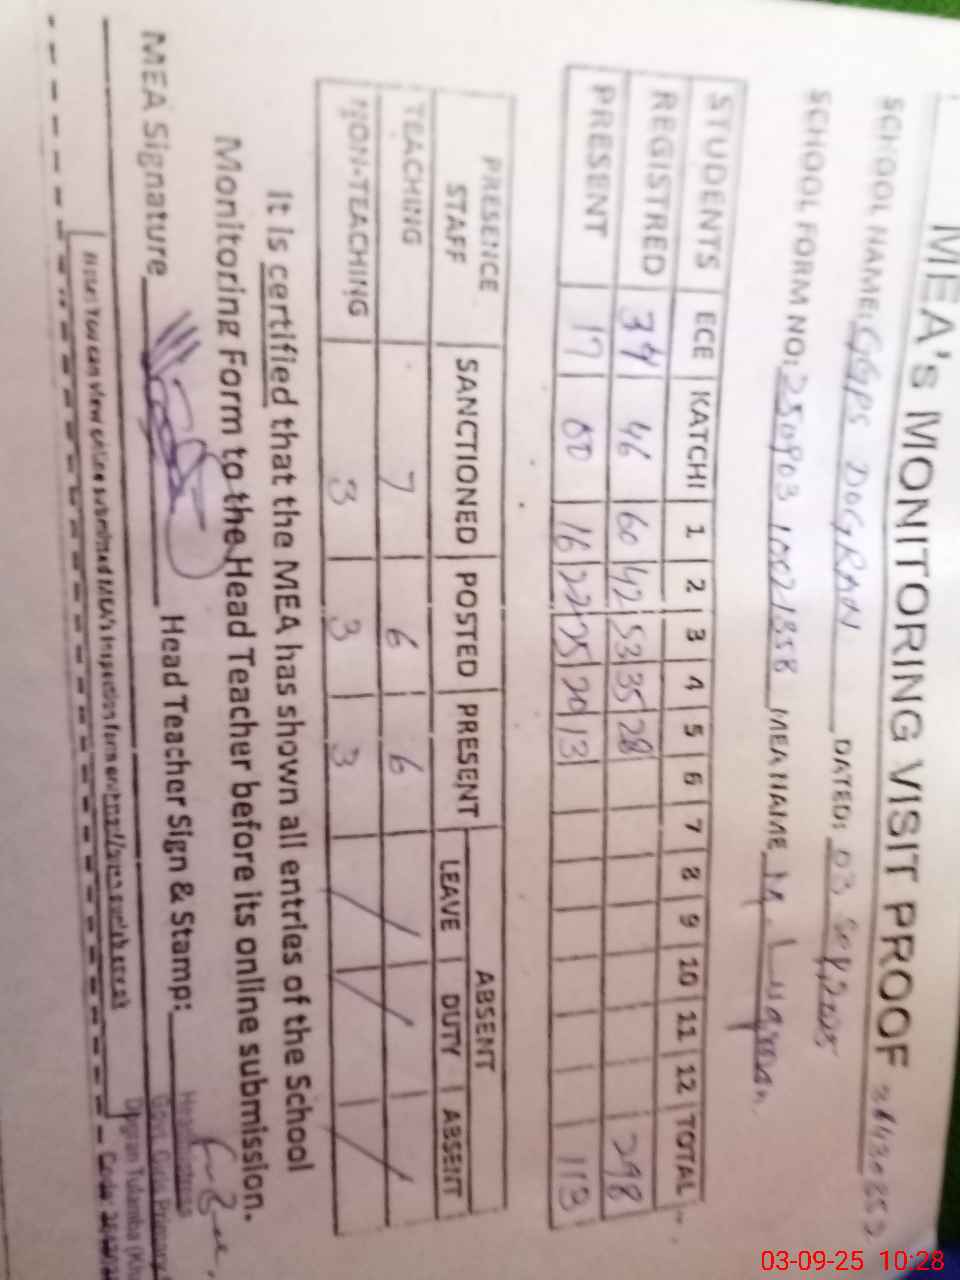 MEA's MONITORING VISIT PROOF
SCHOOL NAME: GGPS DOGRAN DATED: 03 Sep, 2025
SCHOOL FORM NO: MEA NAME M. Luqman
STUDENTS ECE KATCHI 1 2 3 4 5 6 7 8 9 10 11 12 TOTAL
REGISTRED 34 46 60 42 53 35 28 298
PRESENT 17 00 16 22 25 20 13 113
PRESENCE STAFF SANCTIONED POSTED PRESENT ABSENT
LEAVE DUTY ABSENT
TEACHING 7 6 6
NON-TEACHING 3 3 3
It is certified that the MEA has shown all entries of the School
Monitoring Form to the Head Teacher before its online submission.
MEA Signature Head Teacher Sign & Stamp:
Headmistress
Govt. Girls Primary
Dogran Tulamba
Note: You can view online submitted MEA's inspection form on
Code:
03-09-25 10:28